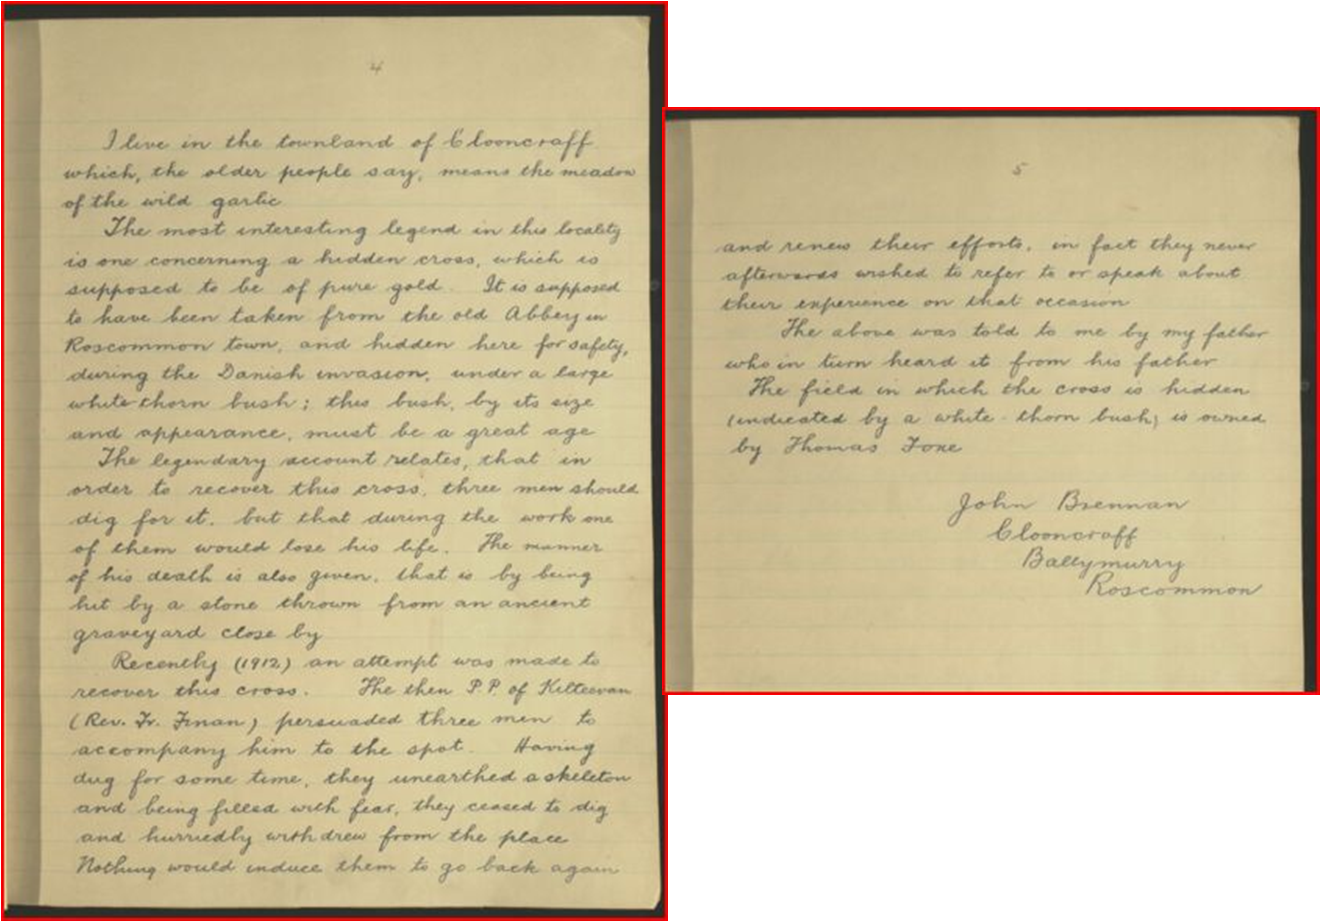 4
I live in the townland of Clooncraff
which, the older people say, means the meadow
of the wild garlic
The most interesting legend in this locality
is one concerning a hidden cross, which is
supposed to be of pure gold. It is supposed
to have been taken from the old Abbey in
Roscommon town, and hidden here for safety,
during the Danish invasion, under a large
white thorn bush; this bush, by its size
and appearance, must be a great age
The legendary account relates, that in
order to recover this cross, three men should
dig for it, but that during the work one
of them would lose his life. The manner
of his death is also given, that is by being
hit by a stone thrown from an ancient
graveyard close by
Recently (1912) an attempt was made to
recover this cross. The then P.P. of Kilteevan
(Rev. Fr. Finan) persuaded three men to
accompany him to the spot. Having
dug for some time, they unearthed a skeleton
and being filled with fear, they ceased to dig
and hurriedly withdrew from the place
Nothing would induce them to go back again
5
and renew their efforts, in fact they never
afterwards wished to refer to or speak about
their experience on that occasion
The above was told to me by my father
who in turn heard it from his father
The field in which the cross is hidden
(indicated by a white-thorn bush) is owned
by Thomas Foxe
John Brennan
Clooncraff
Ballymurry
Roscommon